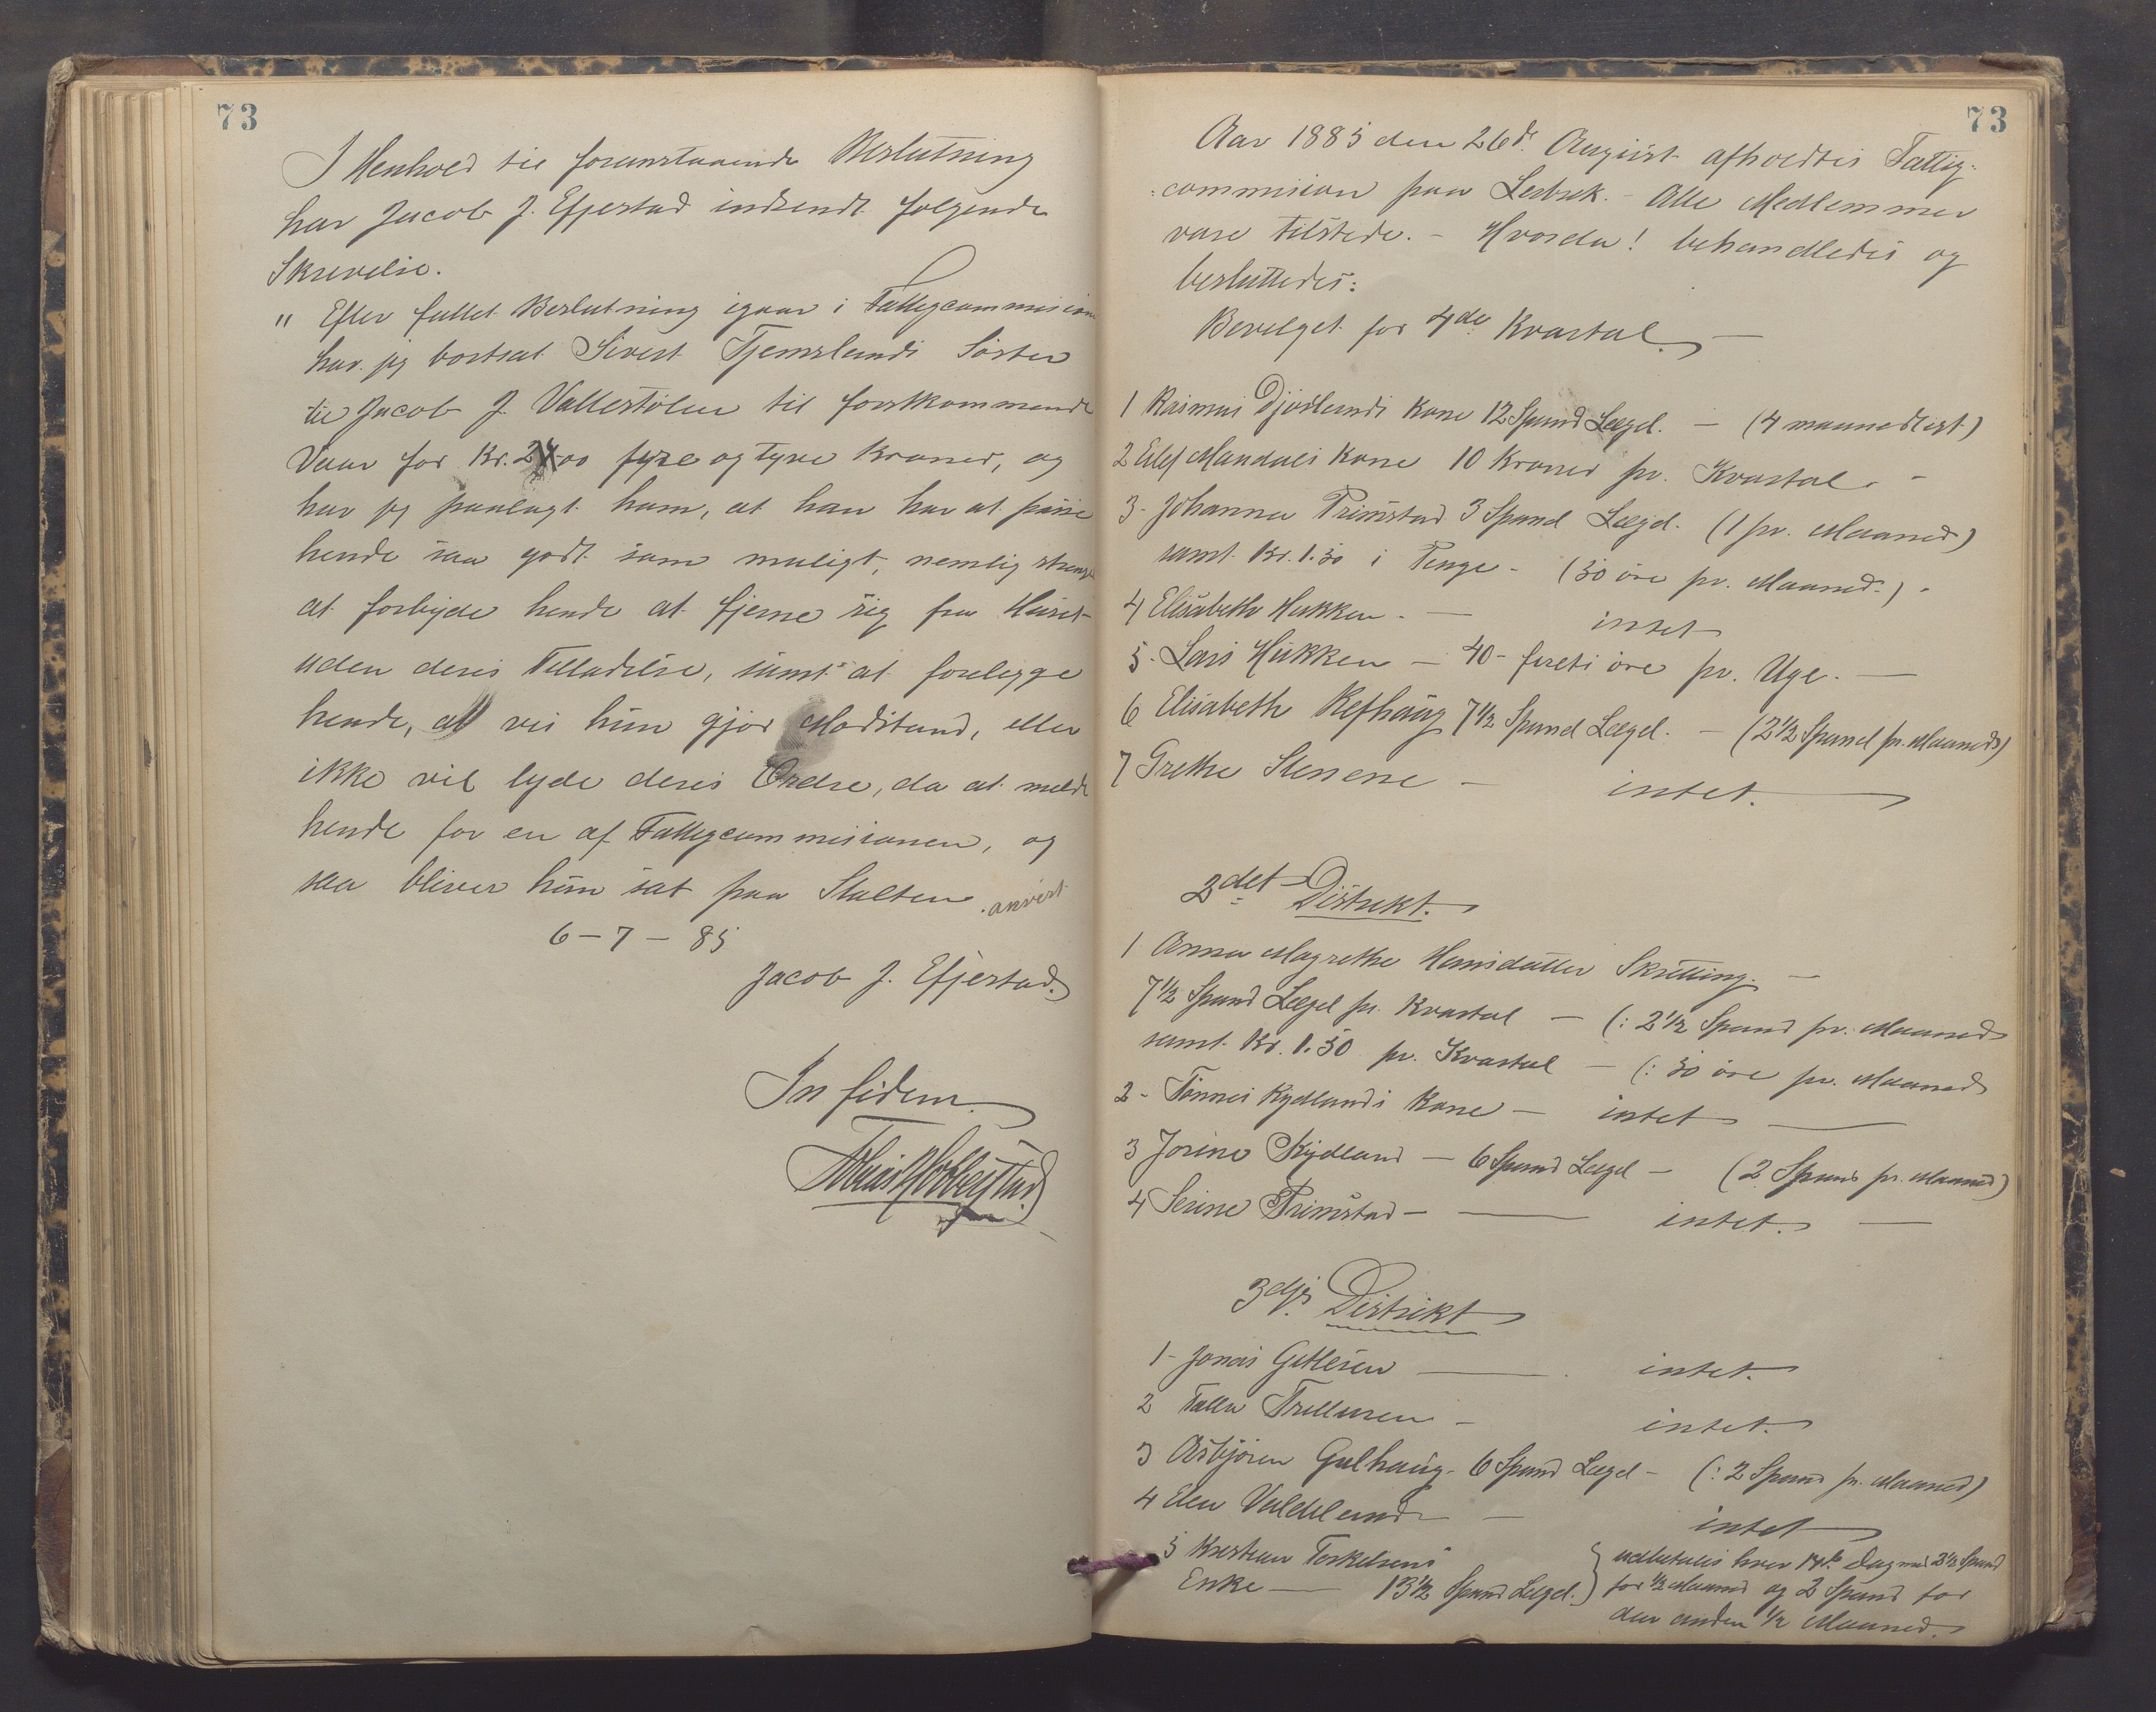 73
I Henhold til foranstaaende Beslutning
har Jacob J. Efjestad indsendt følgende
Skrivelse.
" Efter fattet Beslutning igaar i Fattigcommision
har jeg bortsat Sivert Tjemslands Søster
til Jacob J. Vallestølen til førstkommende
Vaar for Kr. 24.00 fyre og tyve Kroner, og
har jeg paalagt ham, at han har at passe
hende saa godt som muligt, nemlig strengt
at forbyde hende at fjerne sig fra Huset
uden deres Tilladelse, samt at forelegge
hende, at vis hun gjør Modstand, eller
ikke vil lyde deres Ordre, da at melde
hende for en af Fattigcommisionen, og
saa bliver hun sat paa Stalten anvist
6 – 7 – 85
Jacob J. Efjestad.
In fidem
73
Aar 1885 den 26de August afholdtes Fattig-
commision paa Lerbrek. – Alle Medlemmer
vare tilstede. – Hvorda! behandledes og
besluttedes:
Bevelget for 4de Kvartal. –
1 Rasmus Djøslands Kone 12 Spand Lægd. – (4 maanedlegt)
2 Eilef Mandals Kone 10 Kroner pr. Kvartal. –
3 – Johanna Primstad 3 Spand Lægd. (1 pr. Maaned)
samt Kr. 1.50 i Penge – (50 øre pr. Maaned.) –
4 Elisabeth Hukken. – intet
5 – Lars Hukken – 40 – fireti øre pr. Uge. –
6 Elisabeth Refhaug 7 1/2 Spand Lægd. – (2 1/2 Spand pr. Maaned)
7 Grethe Stenene – intet.
2det Distrekt.
1 Anna Magrethe Hansdatter Skretting. –
7 1/2 Spand Lægd pr. Kvartal – (: 2 1/2 Spand pr. Maaned
samt Kr. 1.50 pr. Kvartal – (: 50 øre pr. Maaned
2 – Tønnes Kydlands Kone – intet
3 Josine Kydland – 6 Spand Lægd – (2 Spand pr. Maaned)
4 Serine Primstad – intet. –
3dje Distrikt
1 – Jonas Gitlesen – intet.
2 Talla Trellusen – intet.
3 Asbjøren Gulhaug – 6 Spand Lægd – (: 2 Spand pr. Maaned)
4 Elen Valdeland – intet
5 Krestian Torkelsens
Enke – 13 1/2 Spand Lægd.
udbetales hver 14de Dag med 2 1/2 Spand
for 1/2 Maaned og 2 Spand for
den anden 1/2 Maaned.